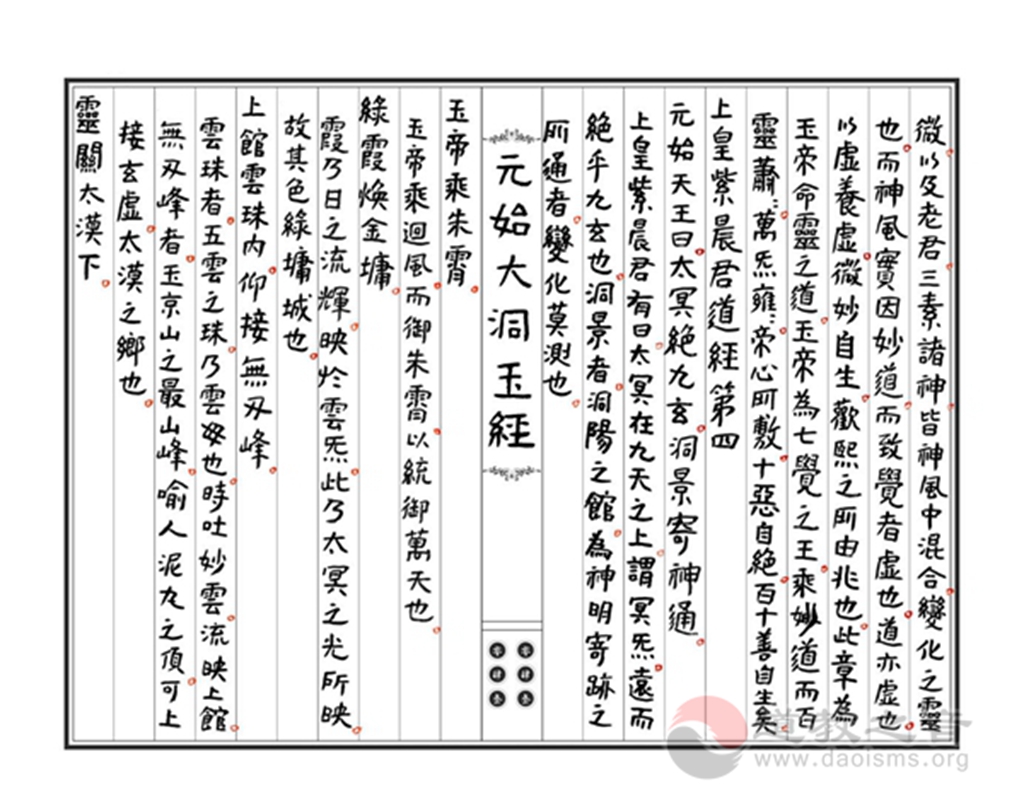 微以及老君三素諸神皆神風中混合變化之靈
也而神風實因妙道而致覺者虛也道亦虛也
以虛養虛微妙自生歡熙之所由兆也此章為
玉帝命靈之道玉帝為七覺之王乘妙道而百
靈蕭：萬炁雍：帝心所敷十惡自絕百十善自生矣
上皇紫晨君道經第四
元始天王曰太冥絕九玄洞景寄神通
上皇紫晨君有曰太冥在九天之上謂冥炁遠而
絕乎九玄也洞景者洞陽之館為神明寄跡之
所通者變化莫測也
元始大洞玉經
零零
肆肆
叁叁
玉帝乘朱霄
玉帝乘迴風而御朱霄以統御萬天也
綠霞煥金墉
霞乃日之流輝映於雲炁此乃太冥之光所映
故其色綠墉城也
上館雲珠內仰接無刃峰
雲珠者五雲之珠乃雲母也時吐妙雲流映上館
無刃峰者玉京山之最山峰喻人泥丸之頂可上
接玄虛太漠之鄉也
靈關太漠下
道教之音
www.daoisms.org